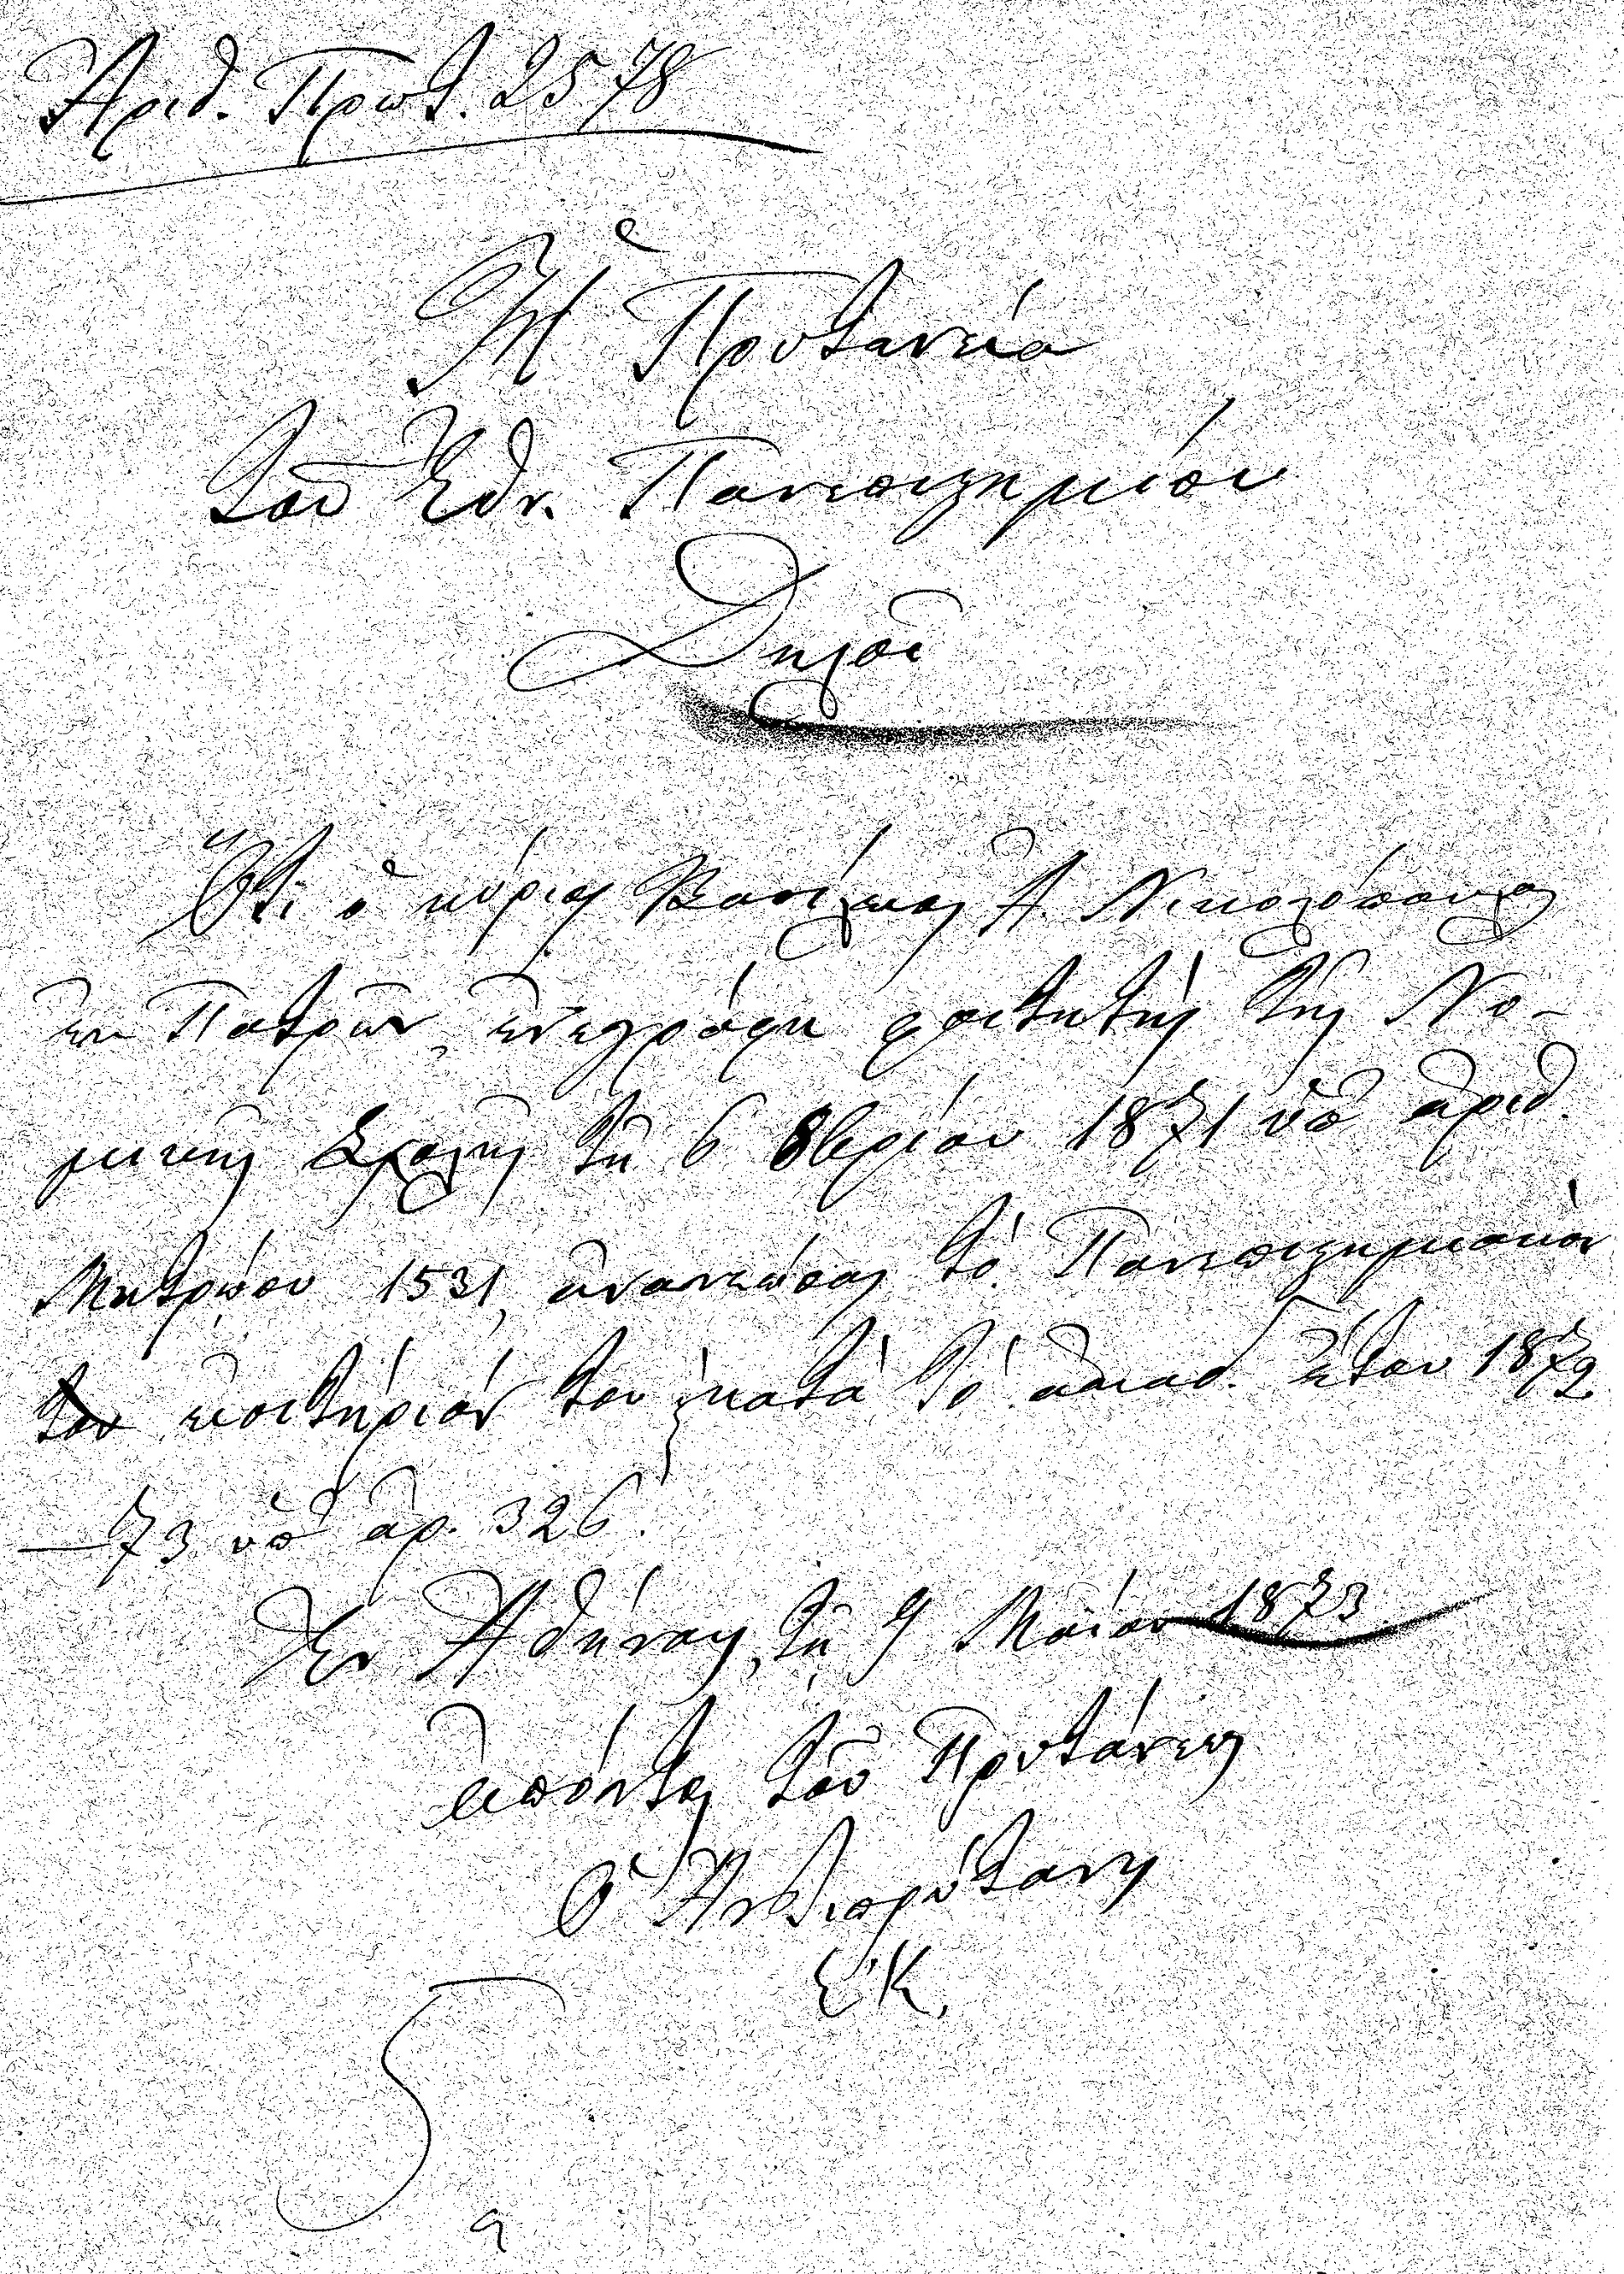 Ἀριθ. Πρωτ. 2578
Ἡ Πρυτανεία
τοῦ Ἐθν. Πανεπιστημίου
Δηλοῖ
Ὅτι ὁ κύριος Βασίλειος Ἀ. Νικολόπουλος
ἐκ Πατρῶν, ἐνεγράφη φοιτητής τῆς Νο-
μικῆς Σχολῆς τῇ 6 8βρίου 1871 ὑπ' ἀριθ.
Μητρώου 1531, ἀνανεώσας τό Πανεπιστημιακόν
του εἰσιτήριόν του κατὰ τό ἀκαδ. ἔτος 1872
—73 ὑπ' ἀρ. 326.
Ἐν Ἀθήναις, τῇ 9 Μαΐου 1873
Ἀπόντος τοῦ Πρυτάνεως
Ὁ Ἀντιπρύτανις
Ε. Κ.